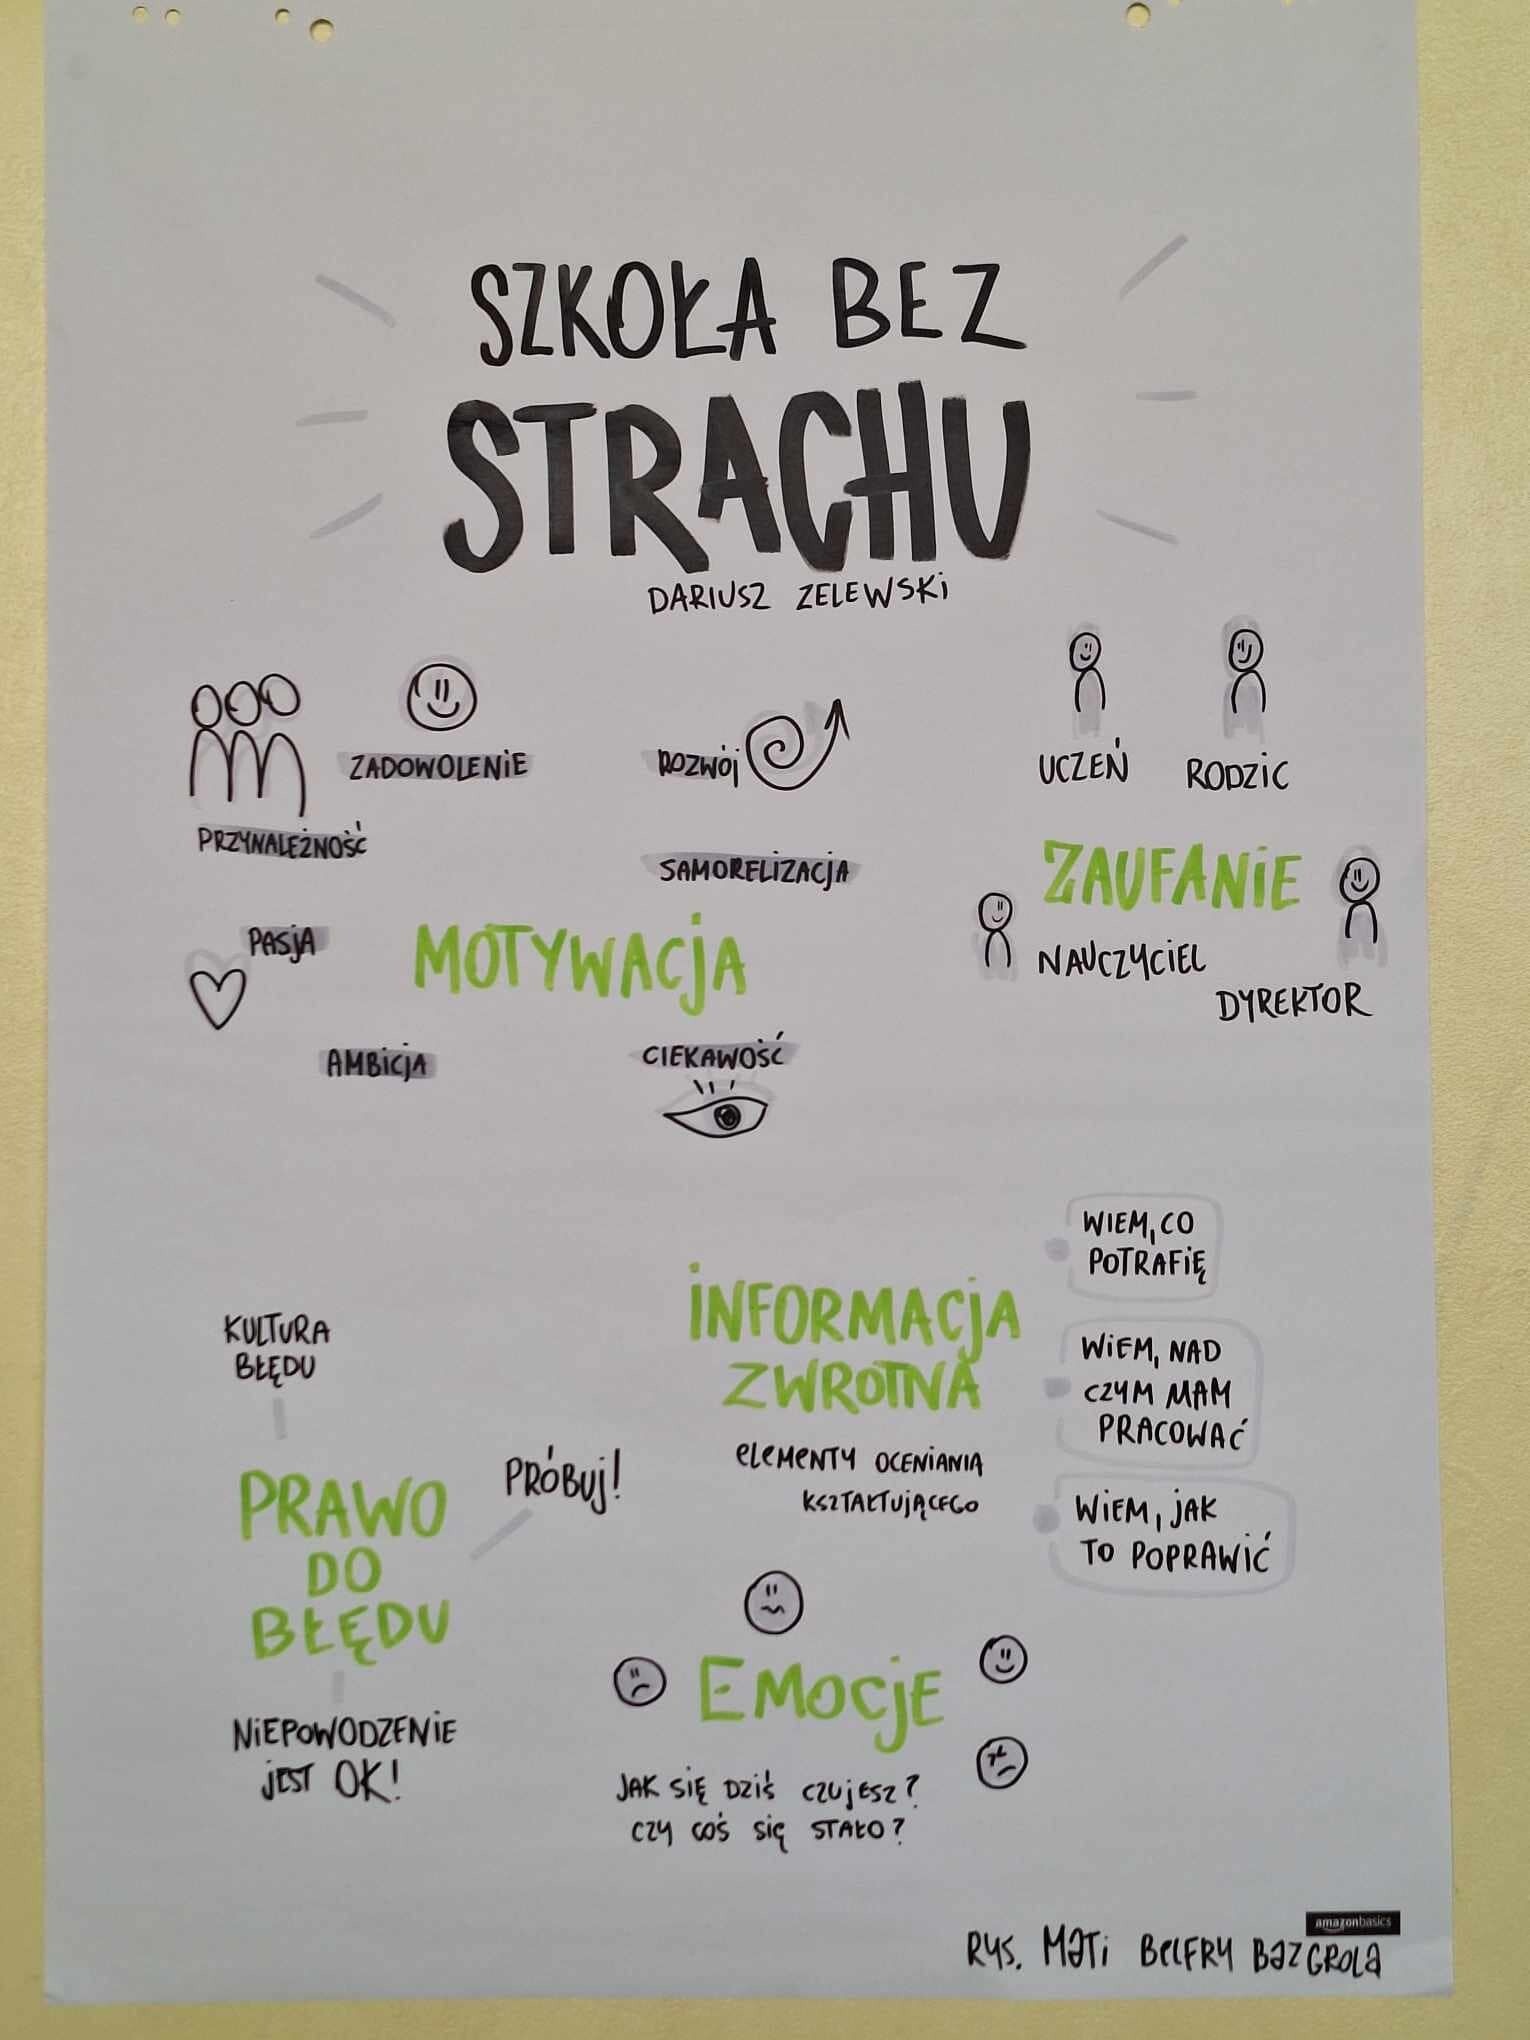 SZKOŁA BEZ
STRACHU
DARIUSZ ZELEWSKI
ZADOWOLENIE
PRZYNALEŻNOŚĆ
ROZWÓJ
SAMORELIZACJA
PASJA
MOTYWACJA
AMBICJA
CIEKAWOŚĆ
UCZEŃ
RODZIC
ZAUFANIE
NAUCZYCIEL
DYREKTOR
KULTURA
BŁĘDU
PRAWO
DO
BŁĘDU
PRÓBUJ!
NIEPOWODZENIE
JEST OK!
INFORMACJA
ZWROTNA
ELEMENTY OCENIANIA
KSZTAŁTUJĄCEGO
WIEM, CO
POTRAFIĘ
WIEM, NAD
CZYM MAM
PRACOWAĆ
WIEM, JAK
TO POPRAWIĆ
EMOCJE
JAK SIĘ DZIŚ CZUJESZ?
CZY COŚ SIĘ STAŁO?
amazonbasics
RYS. MATI BELFRY BAZGROLĄ